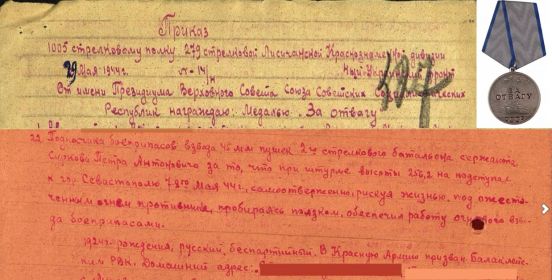 Приказ
1005 стрелковому полку 279 стрелковой Лисичанской Краснознаменной дивизии
29 Мая 1944г. № 14/н 4ый Украинский фронт
От имени Президиума Верховного Совета Союза Советских Социалистических
Республик награждаю: Медалью "За отвагу"
107
ЗА
ОТВАГУ
СССР
22. Подносчика боеприпасов взвода 45 мм пушек 2го стрелкового батальона сержанта
Петра Антоновича за то, что при штурме высоты 256,2 на подступах
к гор. Севастополю 7-8го Мая 44г, самоотверженно, рискуя жизнью, под ожесто-
ченным огнем противника, пробираясь ползком, обеспечил работу огневого взво-
да боеприпасами.
1924г. рождения, русский, беспартийный. В Красную Армию призван Балаклейс-
ким РВК. Домашний адрес: